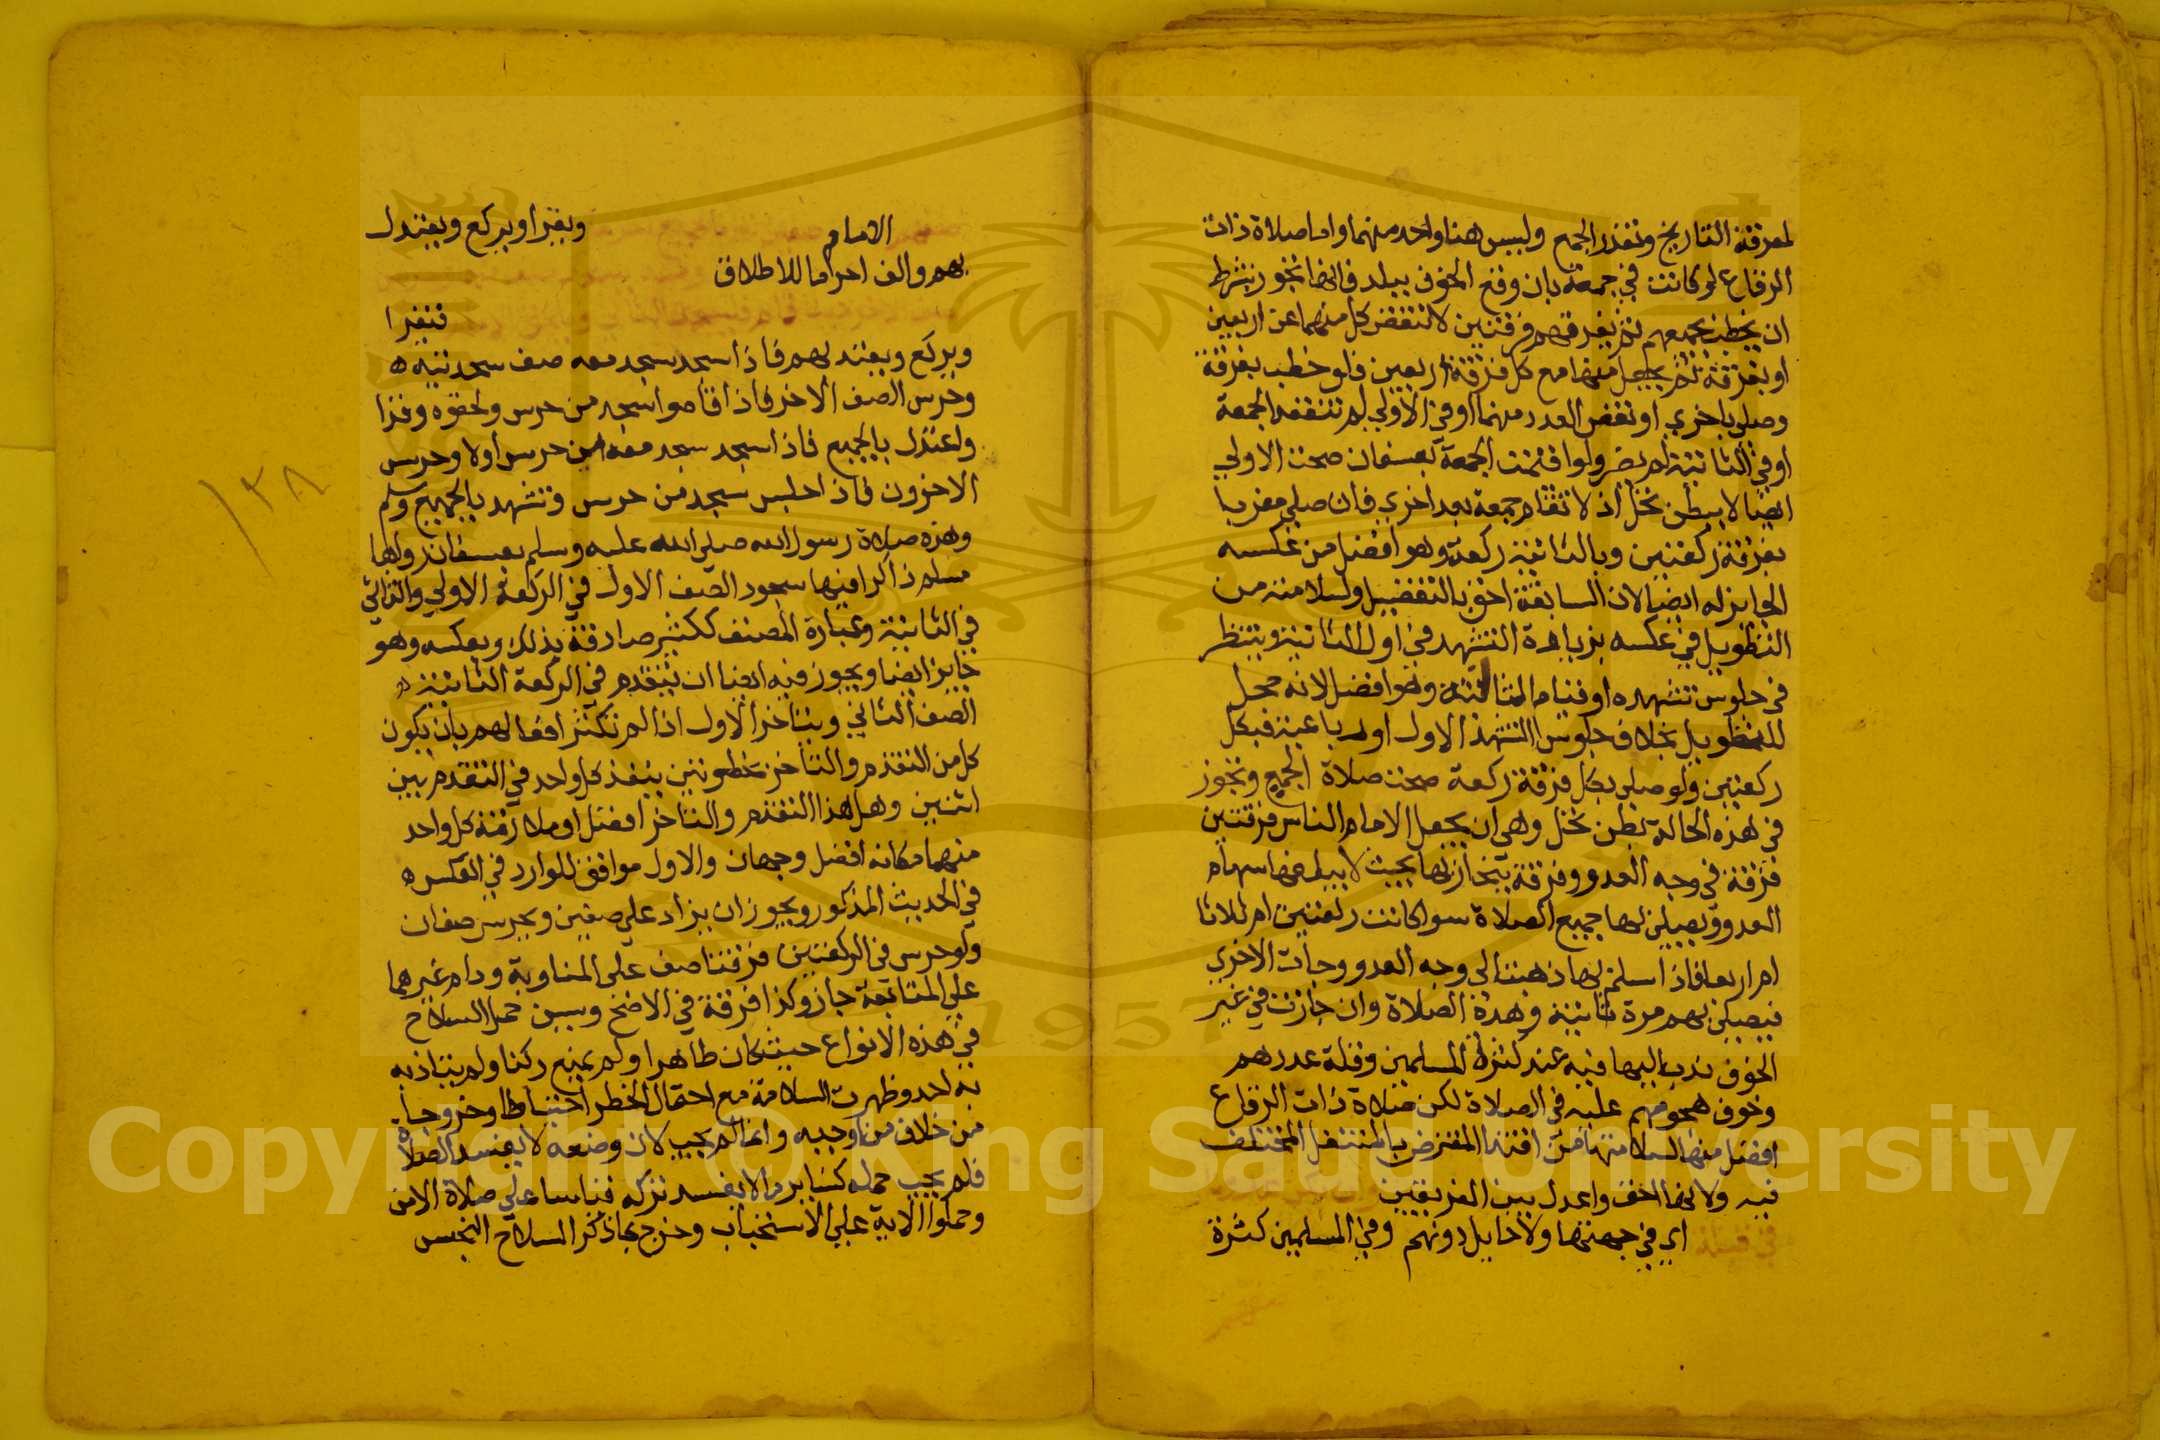 لمعرفة التاريخ وتعذر الجمع وليس هنا واحد منهما واما صلاة ذات
الرقاع لو كانت في جمعة بان وقع الخوف ببلد فانها تجوز بشرط
ان يخطب بجميعهم ثم يفرقهم فرقتين لا تنقص كل منهما عن اربعين
او بفرقة ثم يجعل منها مع كل فرقة اربعين فلو خطب بفرقة
وصلى باخري او نقص العدد منهما او في الاولي لم تنعقد الجمعة
او في الثانية لم يضر ولو اقيمت الجمعة بعسفان صحت الاولي
ايضا لا ببطن نخل اذ لا تقام جمعة بعد اخري فان صلي مغربا
بفرقة ركعتين وبالثانية ركعة وهو افضل من عكسه
الجايز له ايضا لان السابقة احق بالتفضيل ولسلامته من
التطويل في عكسه بزيادة التشهد في اول الثانية وينتظر
في جلوس تشهده او قيام الثالثة وهو افضل لانه محل
للتطويل بخلاف جلوس التشهد الاول او رباعية فبكل
ركعتين ولو صلى بكل فرقة ركعة صحت صلاة الجميع وتجوز
في هذه الحالة بطن نخل وهي ان يجعل الامام الناس فرقتين
فرقة في وجه العدو وفرقة ينحاز بها بحيث لا يبلغها سهام
العدو ويصلي بها جميع الصلاة سوا كانت ركعتين ام ثلاثا
ام اربعا فاذا سلم بها ذهبت الى وجه العدو وجات الاخري
فيصلي بهم مرة ثانية وهذه الصلاة وان جازت في غير
الخوف ندب اليها فيه عند كثرة المسلمين وقلة عددهم
وخوف هجومهم عليه في الصلاة لكن صلاة ذات الرقاع
افضل منها لسلامتها من اقتدا المفترض بالمتنفل المختلف
فيه ولانها اخف واعدل بين الفريقين
في قبلة اي في جهتها ولا حايل دونهم وفي المسلمين كثرة
الامام ويقرا ويركع ويعتدل
بهم والف احراما للاطلاق
فيقرا
ويركع ويعتدل بهم فاذا سجد سجد معه صف سجدتيه
وحرس الصف الاخر فاذا قاموا سجد من حرس ولحقوه وقرا
واعتدل بالجميع فاذا سجد سجد معه من حرس اولا وحرس
الاخرون فاذا جلس سجد من حرس وتشهد بالجميع وسلم
وهذه صلاة رسول الله صلى الله عليه وسلم بعسفان رواها
مسلم ذاكرا فيها سجود الصف الاول في الركعة الاولي والثاني
في الثانية وعبارة المصنف ككثير صادقة بذلك وبعكسه وهو
جايز ايضا ويجوز فيه ايضا ان يتقدم في الركعة الثانية
الصف الثاني ويتاخر الاول اذا لم تكثر افعالهم بان يكون
كل من التقدم والتاخر بخطوتين ينفذ كل واحد في التقدم بين
اثنين وهل هذا التقدم والتاخر افضل او ملازمة كل واحد
منهما مكانه افضل وجهان والاول موافق للوارد في العكس
في الحديث المذكور ويجوز ان يزاد على صفين ويحرس صفان
ولو حرس في الركعتين فرقتا صف على المناوبة ودام غيرهما
علي المتابعة جاز وكذا فرقة في الاصح وسن حمل السلاح
في هذه الانواع حيث كان طاهرا ولم يمنع ركنا ولم يتاذ به
به احد وظهرت السلامة مع احتمال الخطر احتياطا وخروجا
من خلاف من اوجبه وانما لم يجب لان وضعه لا يفسد الصلاة
فلم يجب حمله كساير ما لا يفسد تركه قياسا علي صلاة الامن
وحملوا الاية علي الاستحباب وخرج بما ذكر السلاح النجس
١٣٨
Copyright © King Saud University
1957